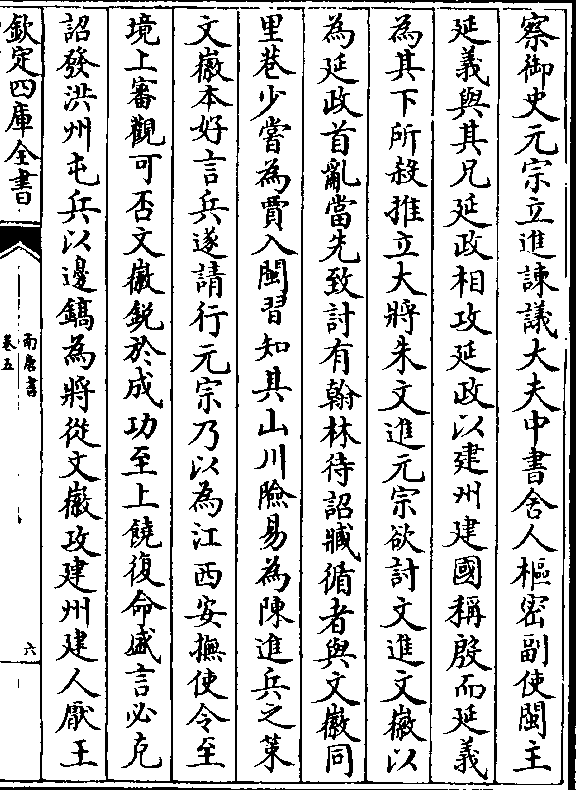 察御史元宗立進諫議大夫中書舍人樞密副使閩主
延義與其兄延政相攻延政以建州建國稱殷而延義
為其下所殺推立大將朱文進元宗欲討文進文徽以
為延政首亂當先致討有翰林待詔臧循者與文徽同
里巷少嘗為賈入閩習知其山川險易為陳進兵之策
文徽本好言兵遂請行元宗乃以為江西安撫使令至
境上審觀可否文徽鋭於成功至上饒復命盛言必克
詔發洪州屯兵以邊鎬為將從文徽攻建州建人厭王
欽定四庫全書
南唐書
卷五
六